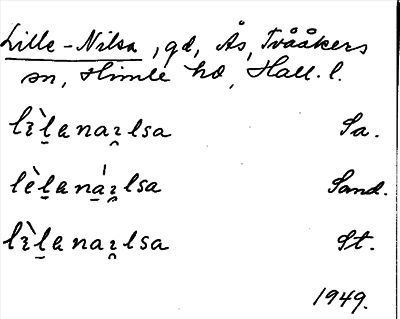 Lille-Nilsa, gd, Ås, Tvååkers
sn, Himle hd, Hall. l.
lɪ̀l̠ɐnaɪ̯lsa Sa.
lèl̠ɐná̠ɪ̯lsa Sand.
lɪ̀l̠ɐnaɪ̯lsa St.
1949.